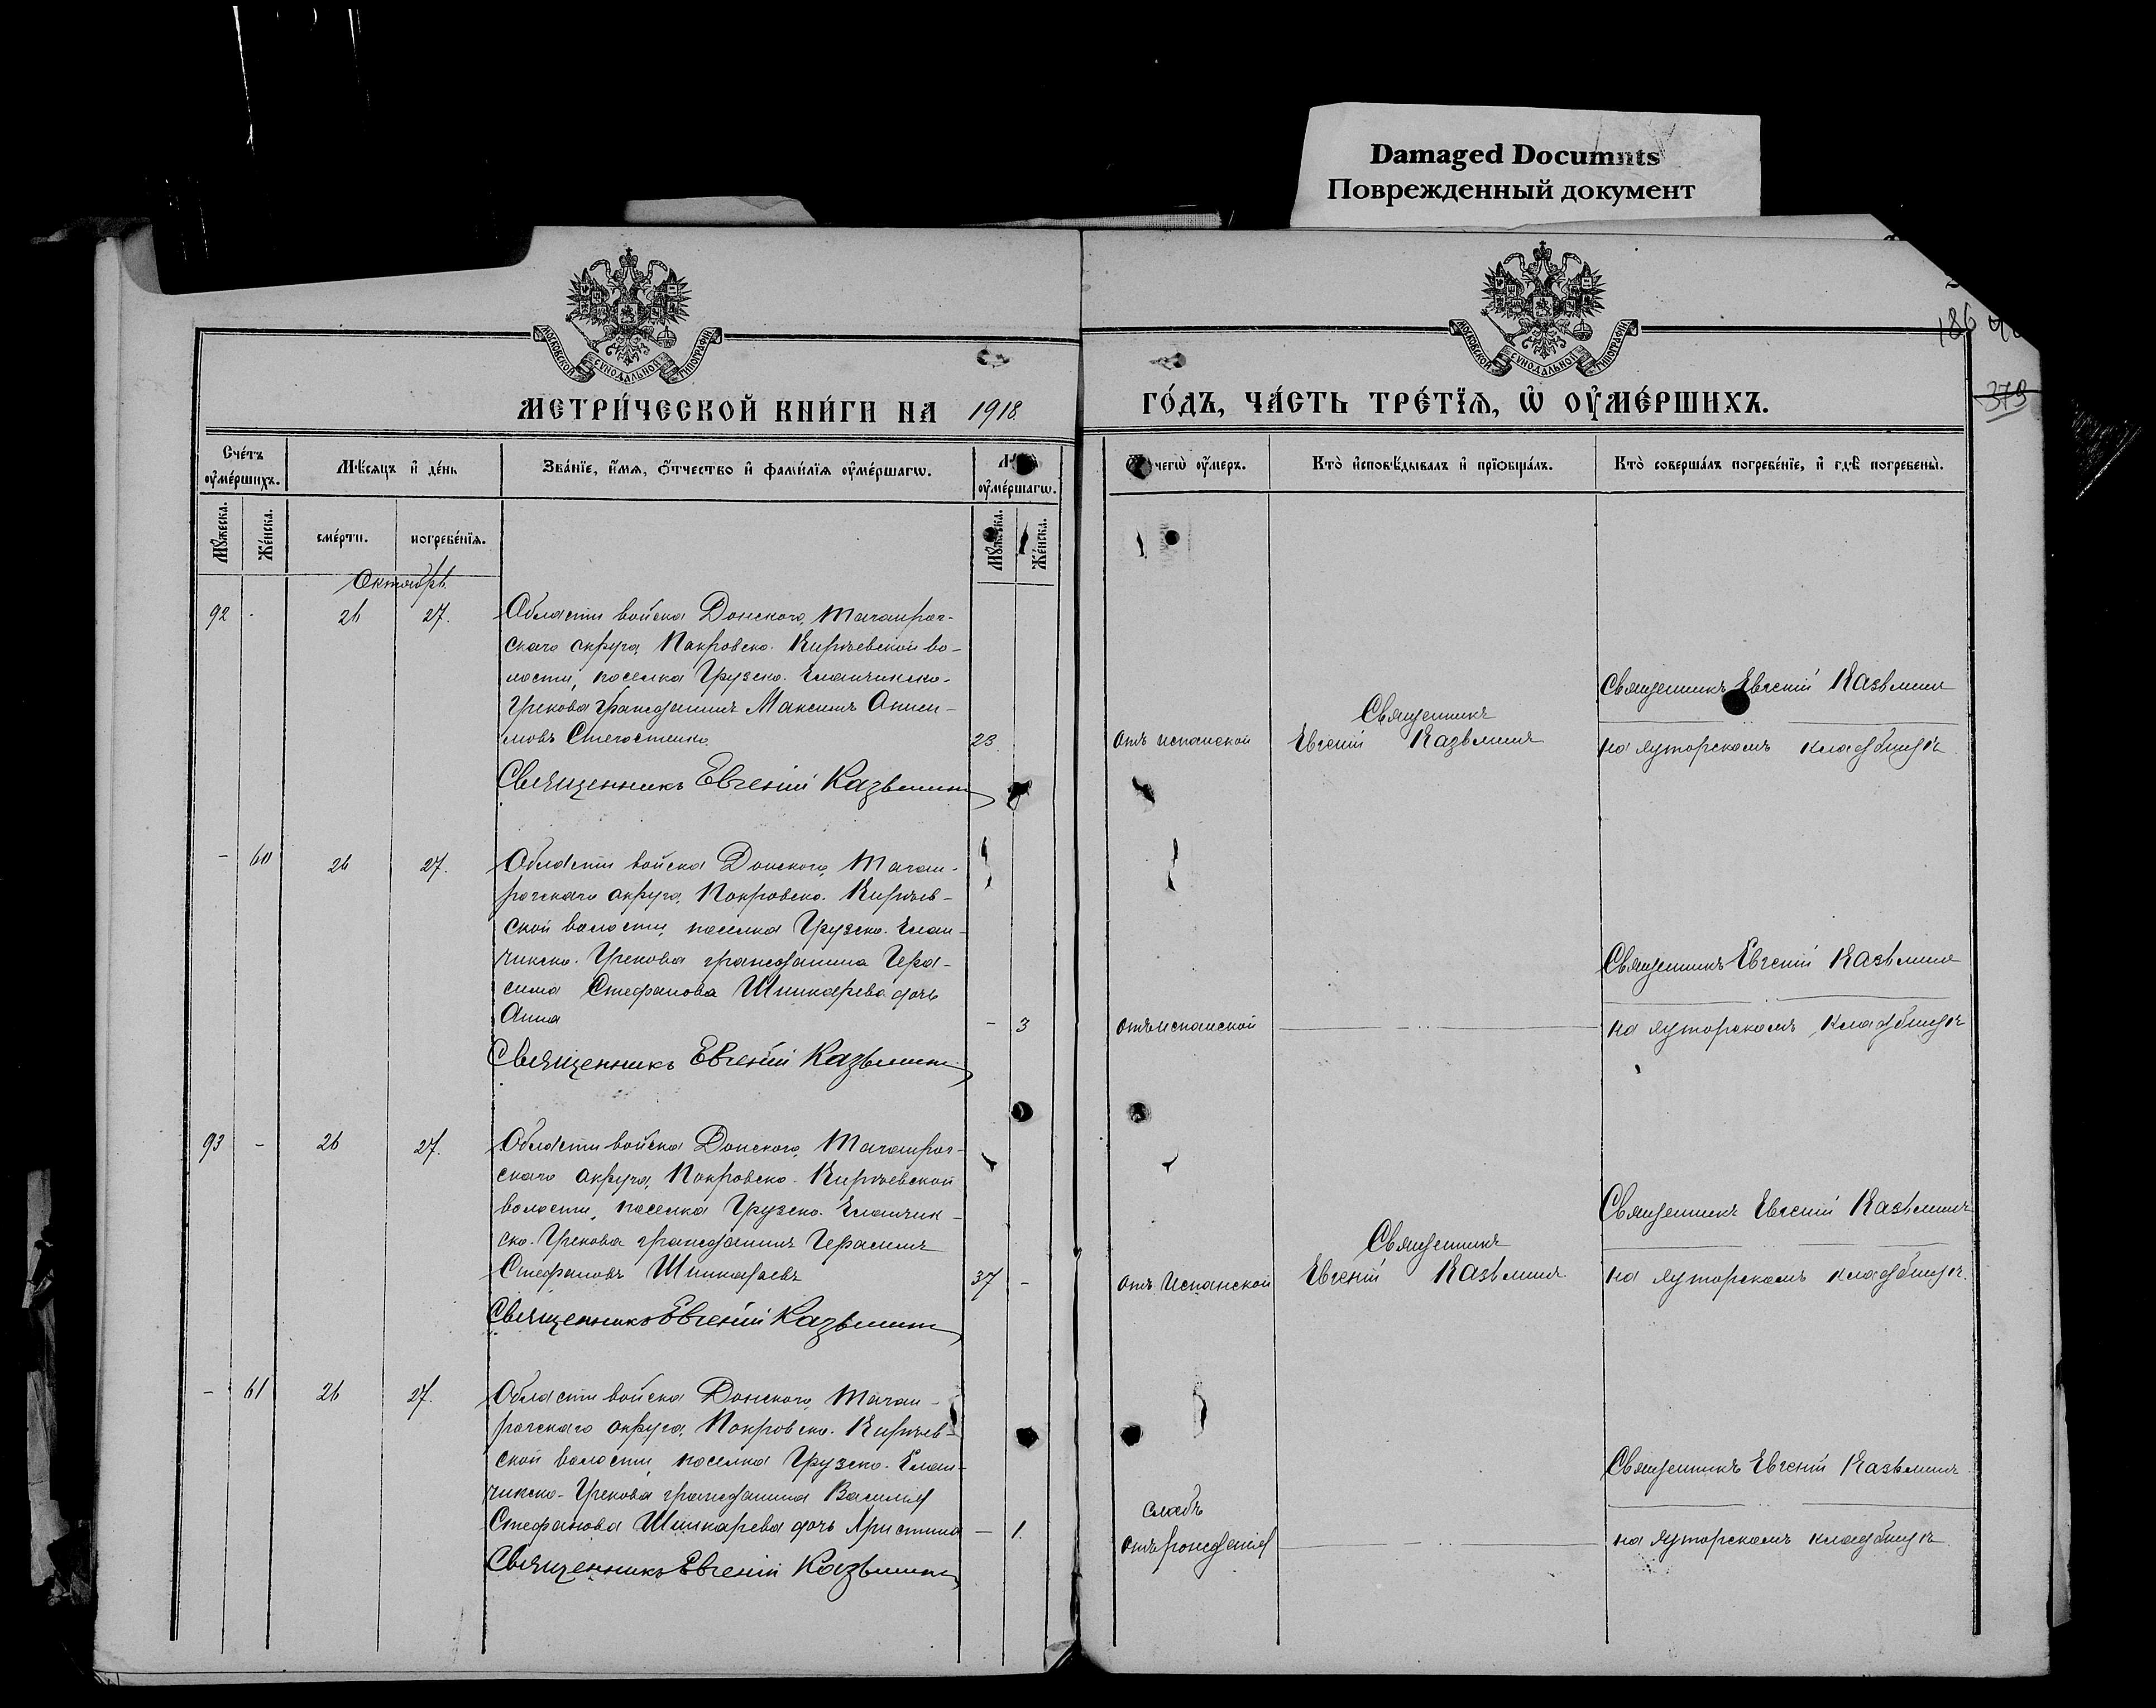 Damaged Documnts
Поврежденный документ
МОСКОВСКОЙ СѴНОДАЛЬНОЙ ТИПОГРАФІИ
МОСКОВСКОЙ СѴНОДАЛЬНОЙ ТИПОГРАФІИ
186
379
МЕТРИ́ЧЕСКОЙ КНИ́ГИ НА 1918 ГО́ДЪ, ЧА́СТЬ ТРЕ́ТЇѦ, Ѡ҆ ОУ҆МЕ́РШИХЪ.
Сче́тъ оу҆ме́ршихъ.
Мѣ́сѧцъ и҆ де́нь
Зва́нїе, и҆́мѧ, ѻ҆́тчество и҆ фами́лїѧ оу҆ме́ршагѡ.
оу҆ме́ршагѡ.
чегѡ̀ оу҆́меръ.
Кто̀ и҆сповѣ́дывалъ и҆ прїѡбща́лъ.
Кто̀ соверша́лъ погребе́нїе, и҆ гдѣ̀ погребены̀.
Мꙋ́жеска.
Же́нска.
сме́рти.
погребе́нїѧ.
Мꙋ́жеска.
Же́нска.
Октябрь
92 - 26 27. Области войска Донского, Таганрог-
скаго округа, Покровско-Кирѣевской во-
лости, поселка Грузско-Еланчикско-
Грекова гражданинъ Максимъ Аниси-
мовъ 23.
Священникъ Евгеній Казьминъ
отъ испанской
Священникъ
Евгеній Казьминъ
Священникъ Евгеній Казьминъ
на хуторскомъ кладбищѣ
- 60 26 27. Области войска Донского, Таган-
рогскаго округа, Покровско-Кирѣев-
ской волости, поселка Грузско-Елан-
чикско-Грекова гражданина Гера-
сима Стефанова Шинкарева дочь
Анна - 3
Священникъ Евгеній Казьминъ
отъ испанской
Священникъ Евгеній Казьминъ
на хуторскомъ кладбищѣ
93 - 26 27. Области войска Донского, Таганрог-
скаго округа, Покровско-Кирѣевской
волости, поселка Грузско-Еланчик-
ско-Грекова гражданинъ Герасимъ
Стефановъ Шинкаревъ 37 -
Священникъ Евгеній Казьминъ
отъ Испанской
Священникъ
Евгеній Казьминъ
Священникъ Евгеній Казьминъ
на хуторскомъ кладбищѣ.
- 61 26 27. Области войска Донского, Таган-
рогскаго округа, Покровско-Кирѣев-
ской волости, поселка Грузско-Елан-
чикско-Грекова гражданина Василія
Стефанова Шинкарева дочь Христина - 1.
Священникъ Евгеній Казьминъ
слабъ
отъ рожденія
Священникъ Евгеній Казьминъ
на хуторскомъ кладбищѣ